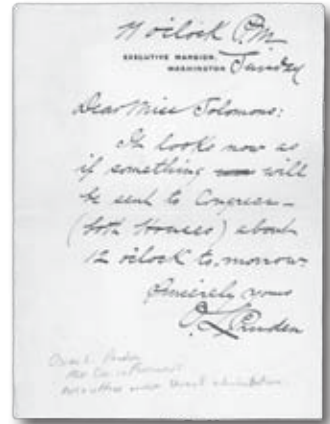 11 o'clock P.M.
EXECUTIVE MANSION,
WASHINGTON
Dear Miss Solomons:
It looks now as
if something will
be sent to Congress—
(both Houses) about
12 o'clock to-morrow.
Sincerely yours
O L Pruden